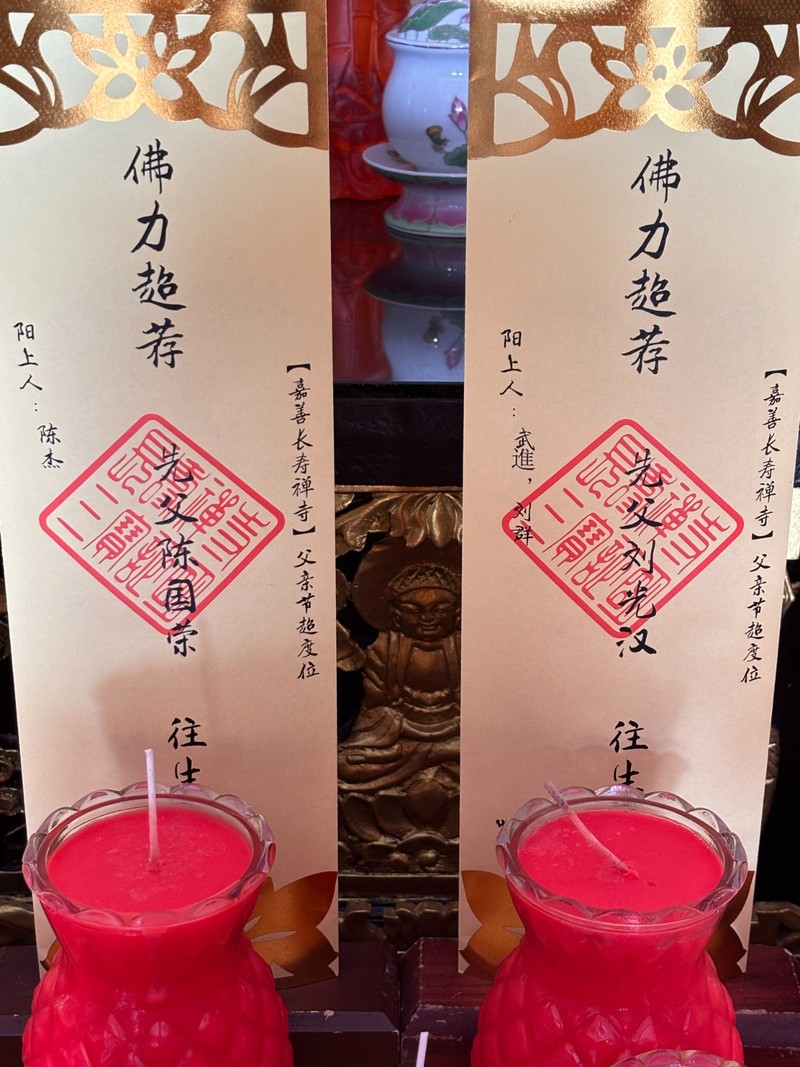 佛力超荐
【嘉善长寿禅寺】父亲节超度位
先父陈国荣
往生
阳上人：陈杰
佛力超荐
【嘉善长寿禅寺】父亲节超度位
先父刘光汉
往生
阳上人：武進，刘群